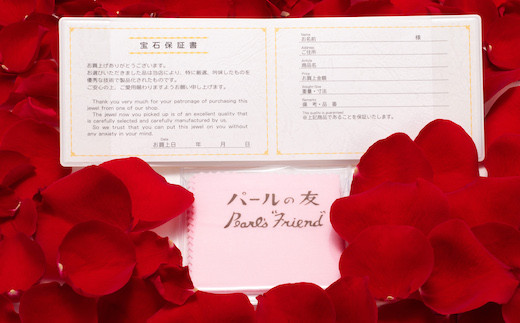 宝石保証書
お買上げありがとうございます。
お選びいただきました品は当店により、特に厳選、吟味したものを
優秀な技術で製品化されたものです。
ご安心の上、ご愛用賜わりますようお願い申し上げます。
Thank you very much for your patronage of purchasing this
jewel from one of our shop.
The jewel now you picked up is of an excellent quality that
is carefully selected and carefully manufactured by us.
So we trust that you can put this jewel on you without
any anxiety in your mind.
お買上日 年 月 日
Name
お名前 様
Address
ご住所
Article
商品名
Price
お買上金額
重量・寸法
備考・品番
The quality is guaranteed
※上記商品であることを保証いたします。
パールの友
Pearl's "Friend"